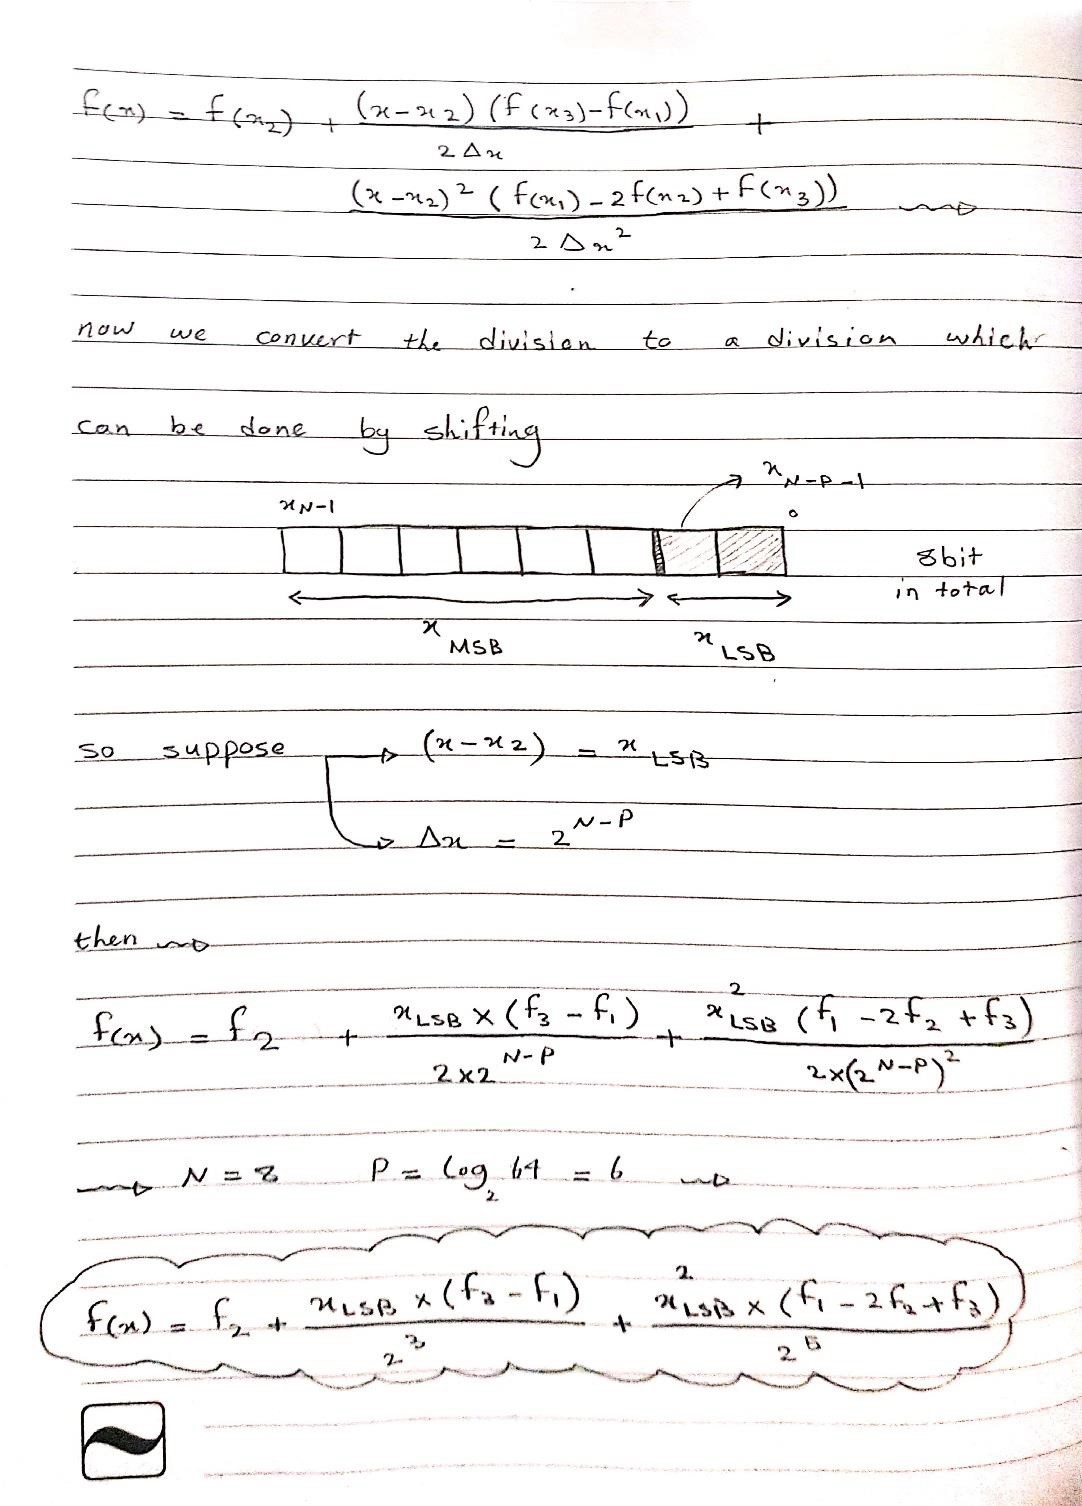 f(x) = f(x₂) + (x-x₂)(f(x₃)-f(x₁)) / 2Δx +
(x-x₂)² (f(x₁) - 2f(x₂) + f(x₃)) / 2Δx²
now we convert the division to a division which
can be done by shifting
x N-P-1
x N-1
0
8bit
in total
x MSB
x LSB
so suppose → (x-x₂) = x LSB
→ Δx = 2^(N-P)
then
f(x) = f₂ + x LSB × (f₃ - f₁) / 2×2^(N-P) + x² LSB (f₁ - 2f₂ + f₃) / 2×(2^(N-P))²
N = 8 P = log₂ 64 = 6
f(x) = f₂ + x LSB × (f₃ - f₁) / 2³ + x² LSB × (f₁ - 2f₂ + f₃) / 2⁵